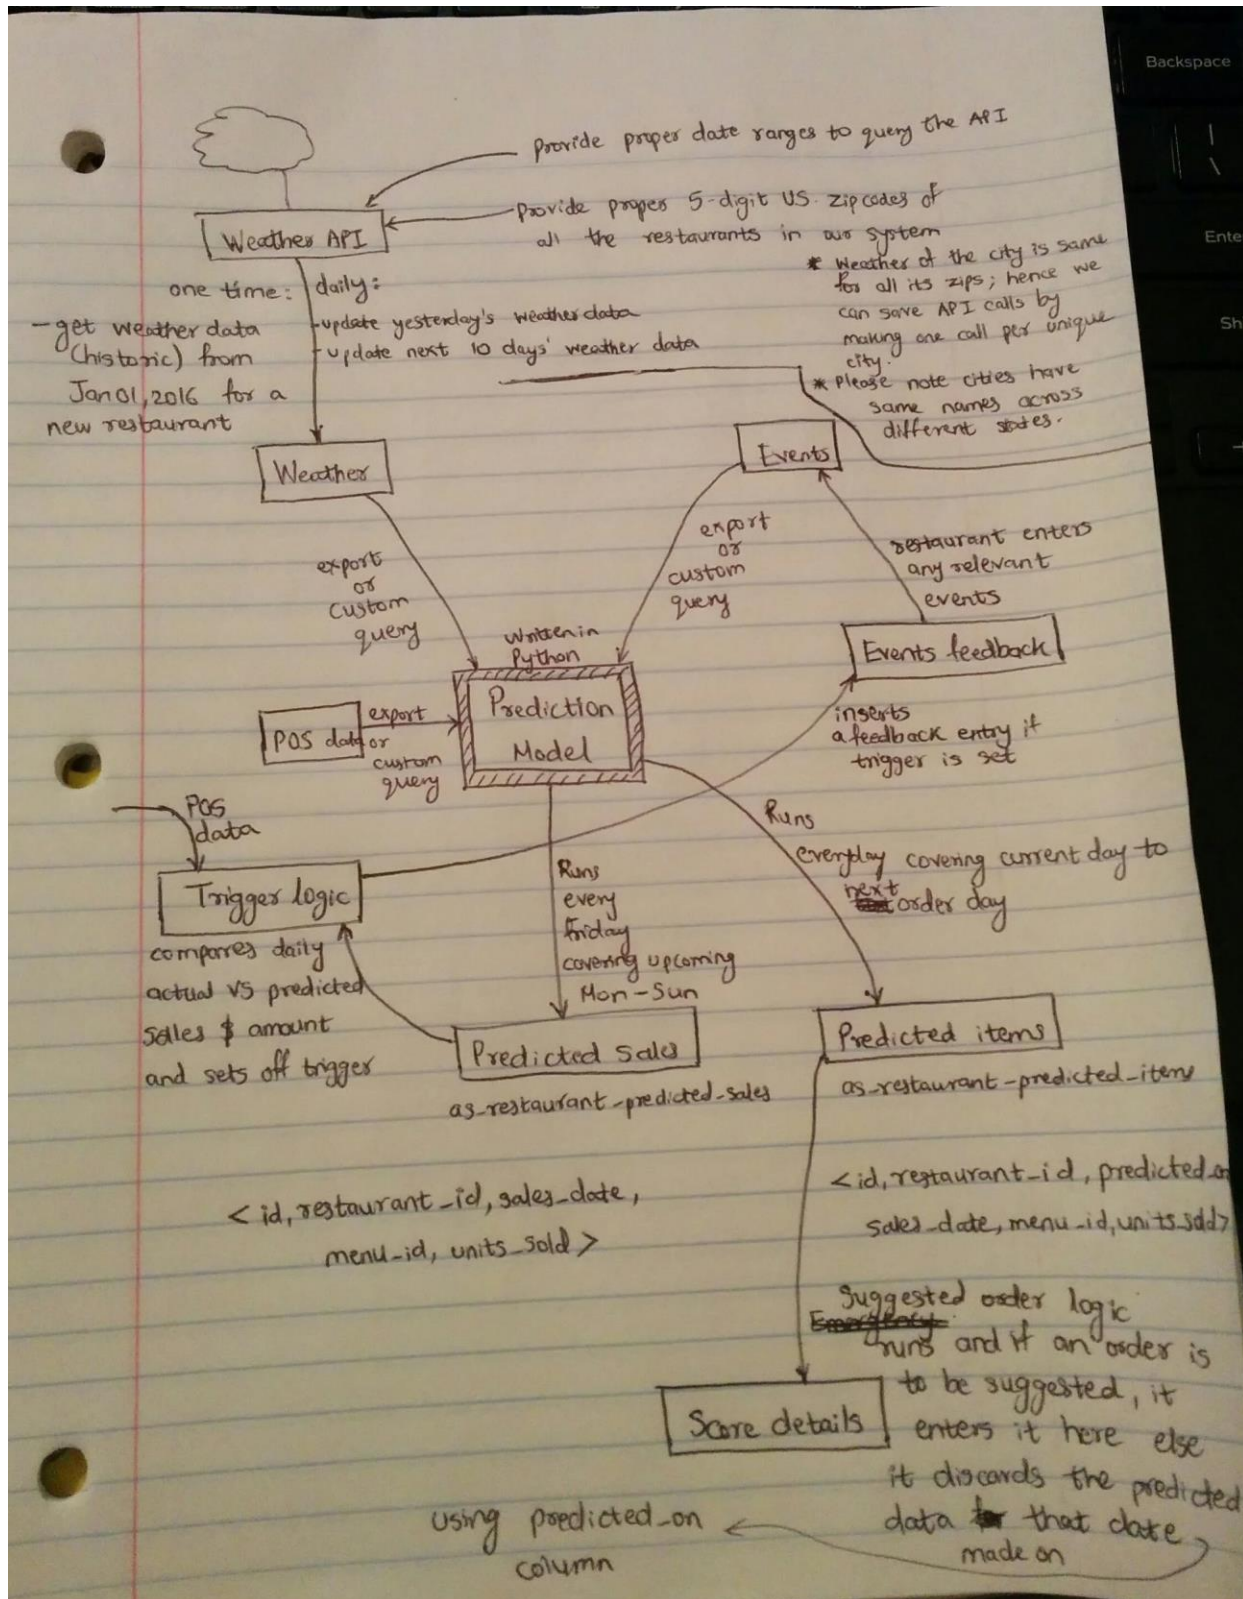 Backspace
|
\
Ente
Sh
Provide proper date ranges to query the API
Provide proper 5-digit US. zipcodes of
all the restaurants in our system
Weather API
* Weather of the city is same
for all its zips; hence we
can save API calls by
making one call per unique
city.
* Please note cities have
same names across
different states.
one time:
- get weather data
(historic) from
Jan 01, 2016 for a
new restaurant
daily:
- update yesterday's weather data
- update next 10 days' weather data
Weather
Events
export
or
custom
query
export
or
custom
query
restaurant enters
any relevant
events
Written in
Python
Events feedback
Prediction
Model
POS data
export
or
custom
query
inserts
a feedback entry if
trigger is set
POS
data
Trigger logic
compares daily
actual vs predicted
sales $ amount
and sets off trigger
Runs
every
friday
covering upcoming
Mon-Sun
Runs
everyday covering current day to
next
order day
Predicted sales
as_restaurant_predicted_sales
Predicted items
as_restaurant_predicted_items
<id, restaurant_id, sales_date,
menu_id, units_sold>
<id, restaurant_id, predicted_on
sales_date, menu_id, units_sold>
Suggested order logic
Emergency
runs and if an order is
to be suggested, it
enters it here else
it discards the predicted
data that date
made on
Score details
using predicted_on
column